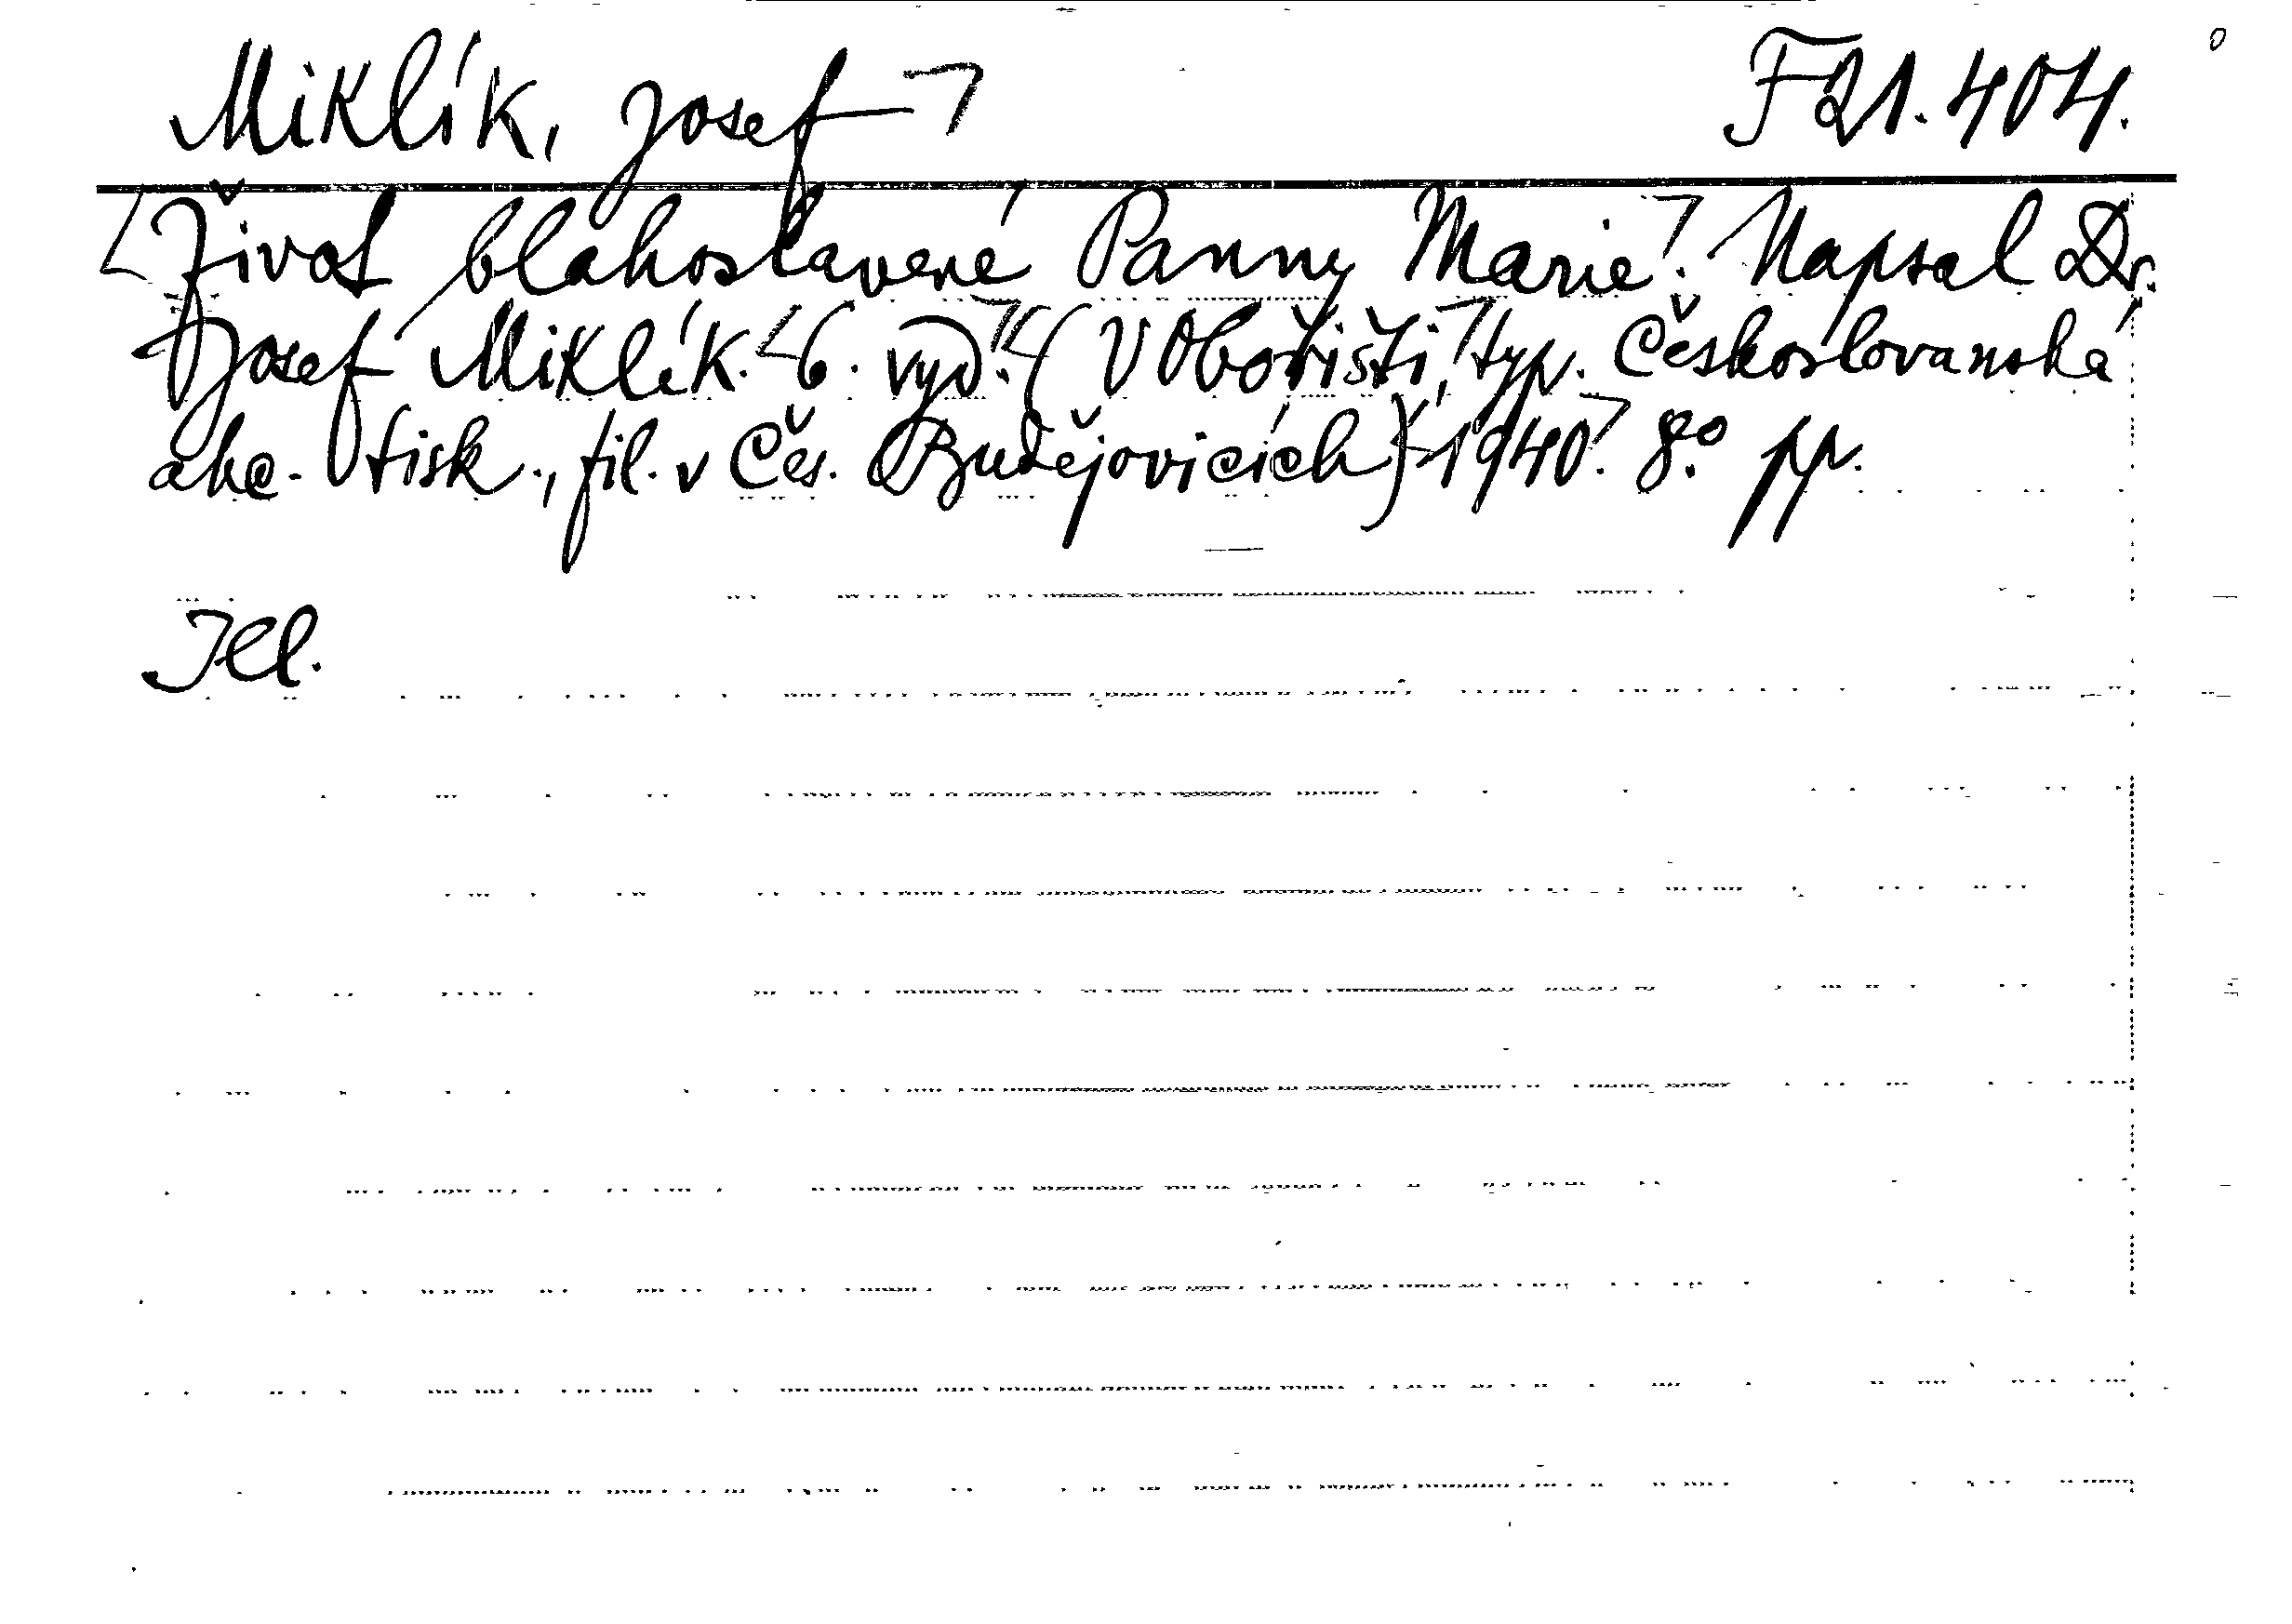 Miklík, Josef F 21.404.
Život blahoslavené Panny Marie. Napsal Dr.
Josef Miklík. 6. vyd. (V Obořišti, typ. Českoslovanská
akc. tisk., fil. v Čes. Budějovicích) 1940. 8° pp.
Ill.